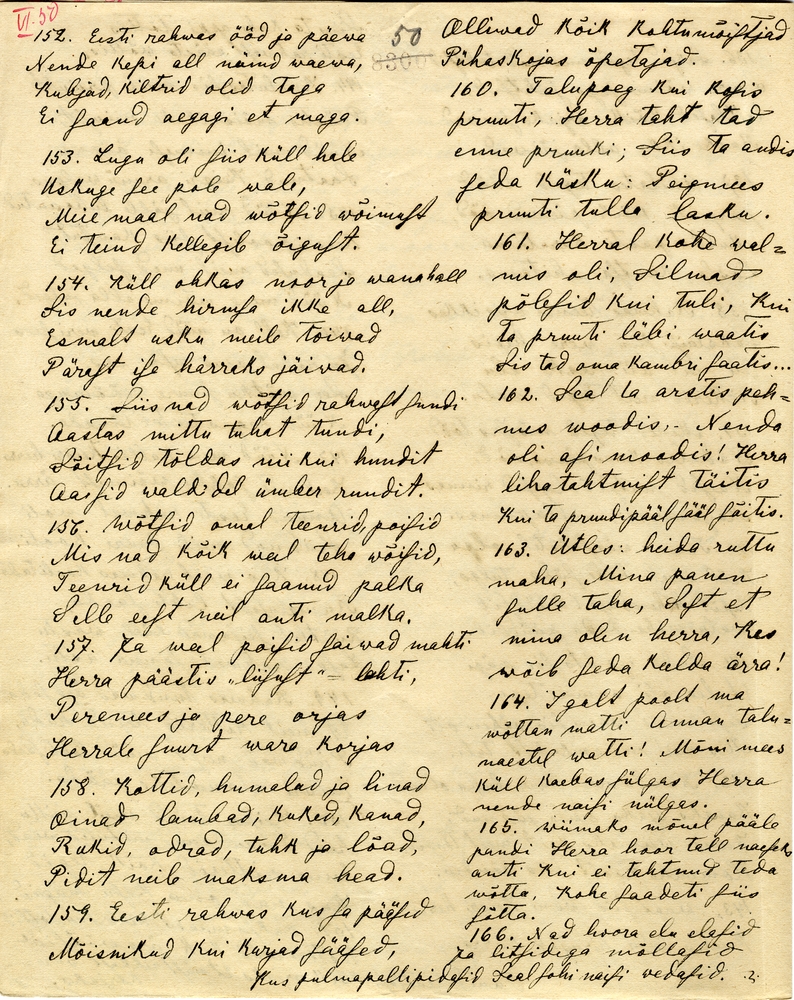 VI. 50
50
8300
152. Eesti rahwas ööd ja päewa
Nende kepi all näind waewa,
Kubjad, kiltrid olid taga
Ei saand aegagi et maga.
153. Lugu oli siis küll hale
Uskuge see pole wale,
Meie maal nad wõtsid wõimust
Ei teind kellegile õigust.
154. Küll ohkas noor ja wana hall
Siis nende hirmsa ikke all,
Esmalt usku meile toiwad
Pärast ise härraks jäiwad.
155. Siis nad wõtsid rahwast sundi
Aastas mittu tuhat tundi,
Sõitsid tõldas nii kui hundit
Aasisid waldidel ümber rundit.
156. Wõtsid omal teenrid, poisid
Mis nad kõik weel teha wõisid,
Teenrid küll ei saanud palka
Selle eest neil anti malka.
157. Ja weel poisid saiwad mahti
Herra päästis „liisust" = lahti,
Peremees ja pere orjas
Herrale suurt wara korjas
158. Kottid, humalad ja linad
Oinad lambad, kuked, kanad,
Rukid, odrad, tuhk ja lõad,
Pidit neile maksma head.
159. Eesti rahwas kus sa pääsed
Mõisnikud kui kurjad sääsed,
Kus pulmapalli pidasid Seal sohi naisi wedasid.
Olliwad kõik kohtumõistjad
Pühaskojas õpetajad.
160. Talupoeg kui kosis
pruuti, Herra taht tad
enne pruuki; Siis ta andis
seda käsku: Peigmees
pruuti tulla lasku.
161. Herral kohe wal=
mis oli, Silmad
põlesid kui tuli, Kui
ta pruuti läbi waatis
Siis tad oma kambri saatis...
162. Seal ta arstis peh=
mes woodis,- Nenda
oli asi moodis! Herra
lihatahtmist täitis
Kui ta pruudi pääl sääl sõitis.
163. Ütles: heida ruttu
maha, Mina panen
sulle taha, Sest et
mina olen herra, Kes
wõib seda keelda ärra!
164. Igalt poolt ma
wõttan matti Annan talu=
naestel watti! Mõni mees
küll kaebas sülgas Herra
nende naisi nülgas.
165. Wiimaks mõnel pääle
pandi Herra hoor tall naeseks
anti Kui ei tahtnud teda
wõtta, Kohe saadeti siis
sõtta.
166. Nad hoora elu elasid
Ja litsidega möllasid